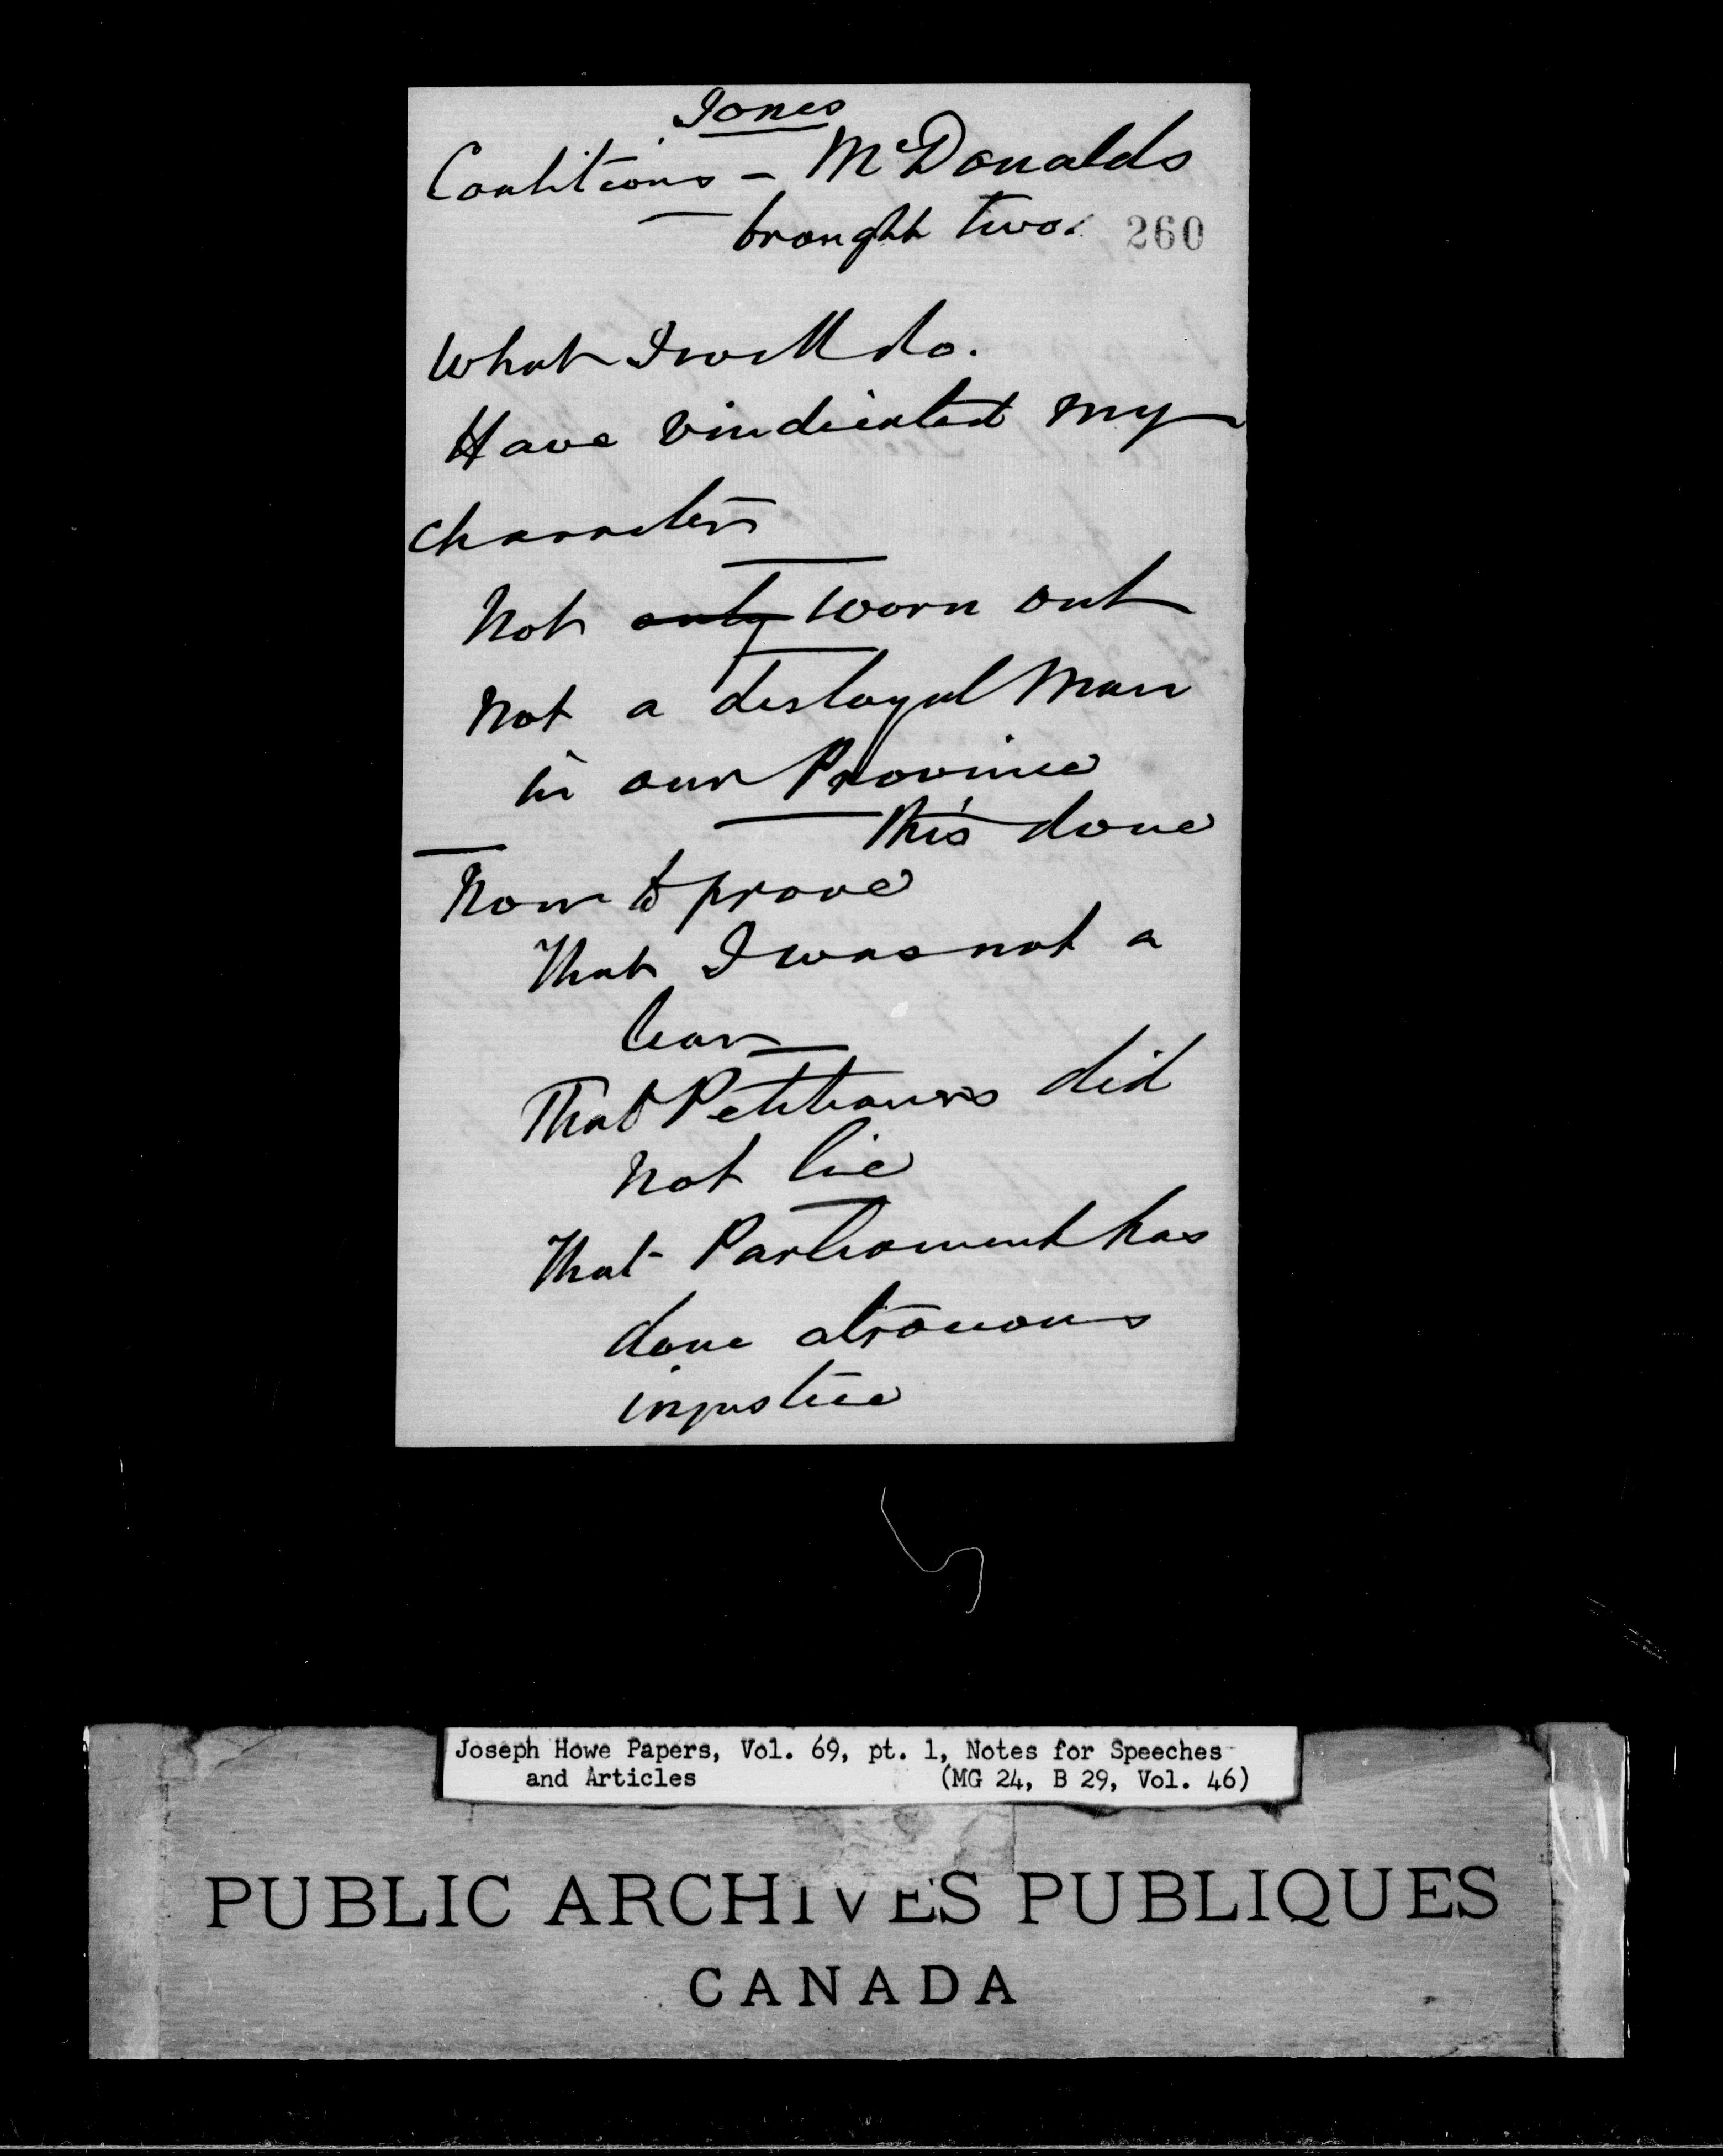 Jones
Coalitions - McDonalds
brought two.
260
What I will do.
Have vindicated my
character
Not only worn out
Not a disloyal man
in our Province
This done
Now to prove
That I was not a
liar
That Petitioners did
not lie
That Parliament has
done atrocious
injustice
Joseph Howe Papers, Vol. 69, pt. 1, Notes for Speeches
and Articles (MG 24, B 29, Vol. 46)
PUBLIC ARCHIVES PUBLIQUES
CANADA